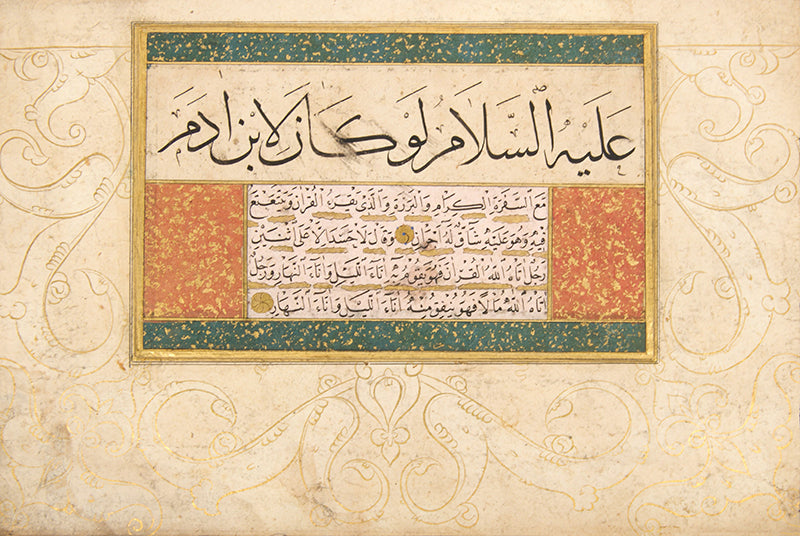 عَلَيْهِ السَّلَامُ لَوْ كَانَ لِابْنِ ادَمَ
مَعَ السَّفَرَةِ الْكِرَامِ وَالْبَرَرَةِ وَالَّذِي يَقْرَءُ الْقُرْاٰنَ وَيَتَعْتَعُ
فِيهِ وَهُوَ عَلَيْهِ شَاقٌّ لَهُ اَجْرَانِ وَقَالَ لَا حَسَدَ اِلَّا عَلَى اثْنَيْنِ
رَجُلٌ اٰتَاهُ اللّٰهُ الْقُرْاٰنَ فَهُوَ يَقُومُ بِهِ اٰنَاءَ اللَّيْلِ وَاٰنَاءَ النَّهَارِ وَرَجُلٌ
اٰتَاهُ اللّٰهُ مَالًا فَهُوَ يُنْفِقُ مِنْهُ اٰنَاءَ اللَّيْلِ وَاٰنَاءَ النَّهَارِ